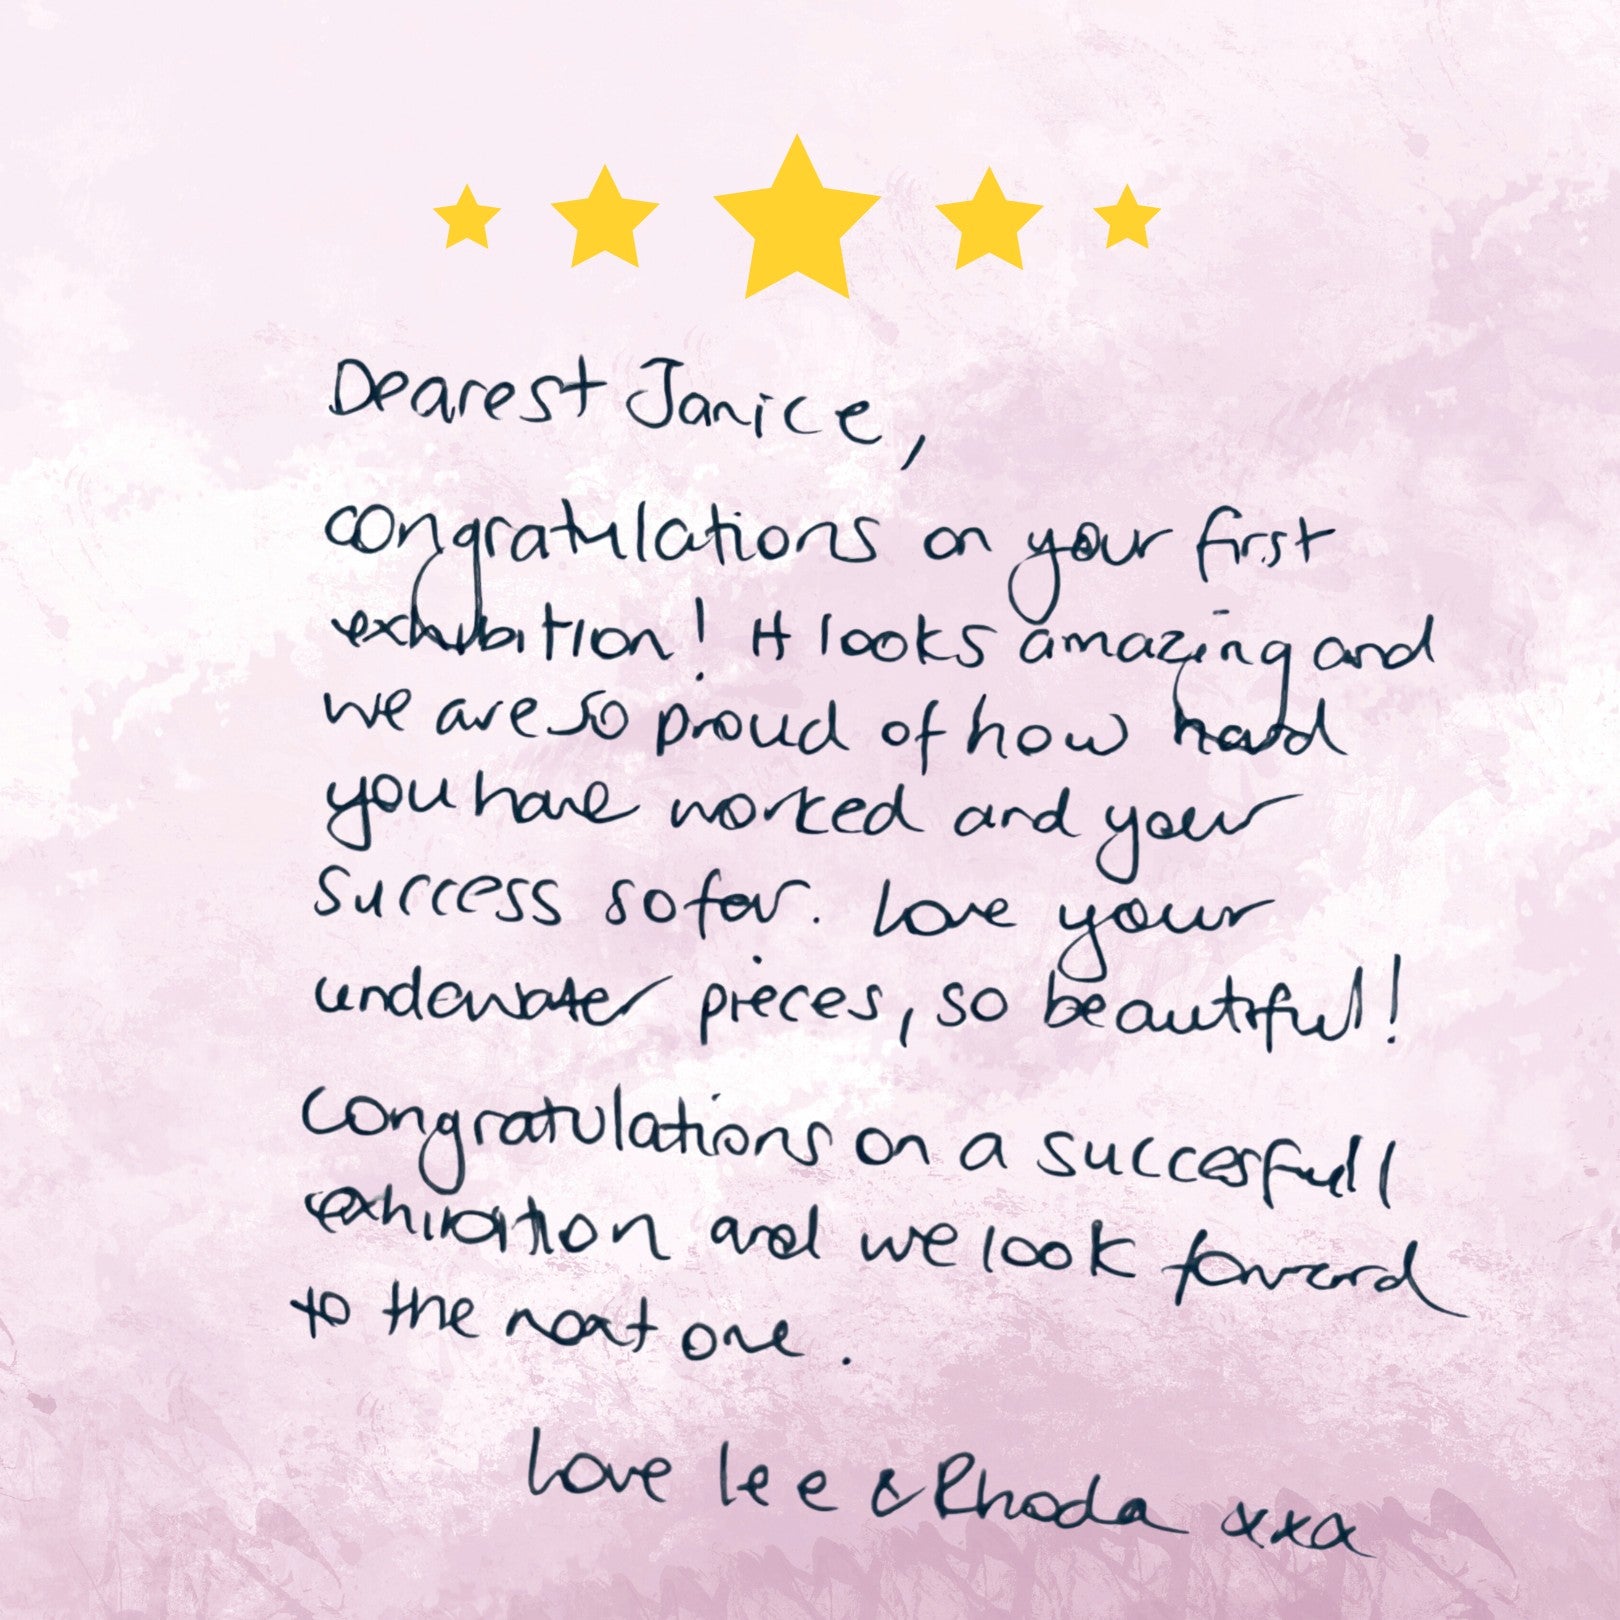 Dearest Janice,
congratulations on your first
exhibition! It looks amazing and
we are so proud of how hard
you have worked and your
success so far. Love your
underwater pieces, so beautiful!
Congratulations on a succesfull
exhibition and we look forward
to the next one.
Love Lee & Rhoda xxx